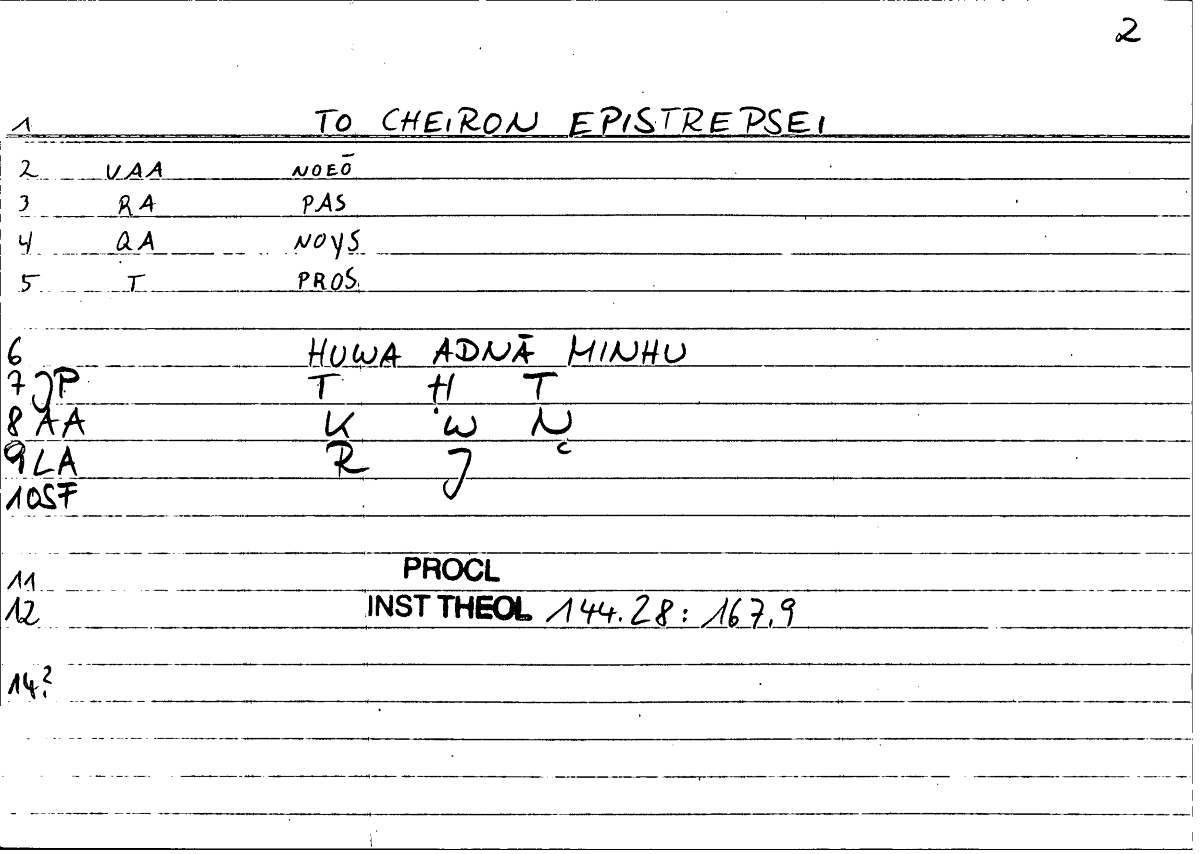 2
1 TO CHEIRON EPISTREPSEI
2 VAA NOEŌ
3 RA PAS
4 QA NOYS
5 T PROS
6 HUWA ADNĀ MINHU
7 JP T H T
8 AA K W N
9 LA R J
10 SF
11 PROCL
12 INST THEOL 144.28: 167.9
14?